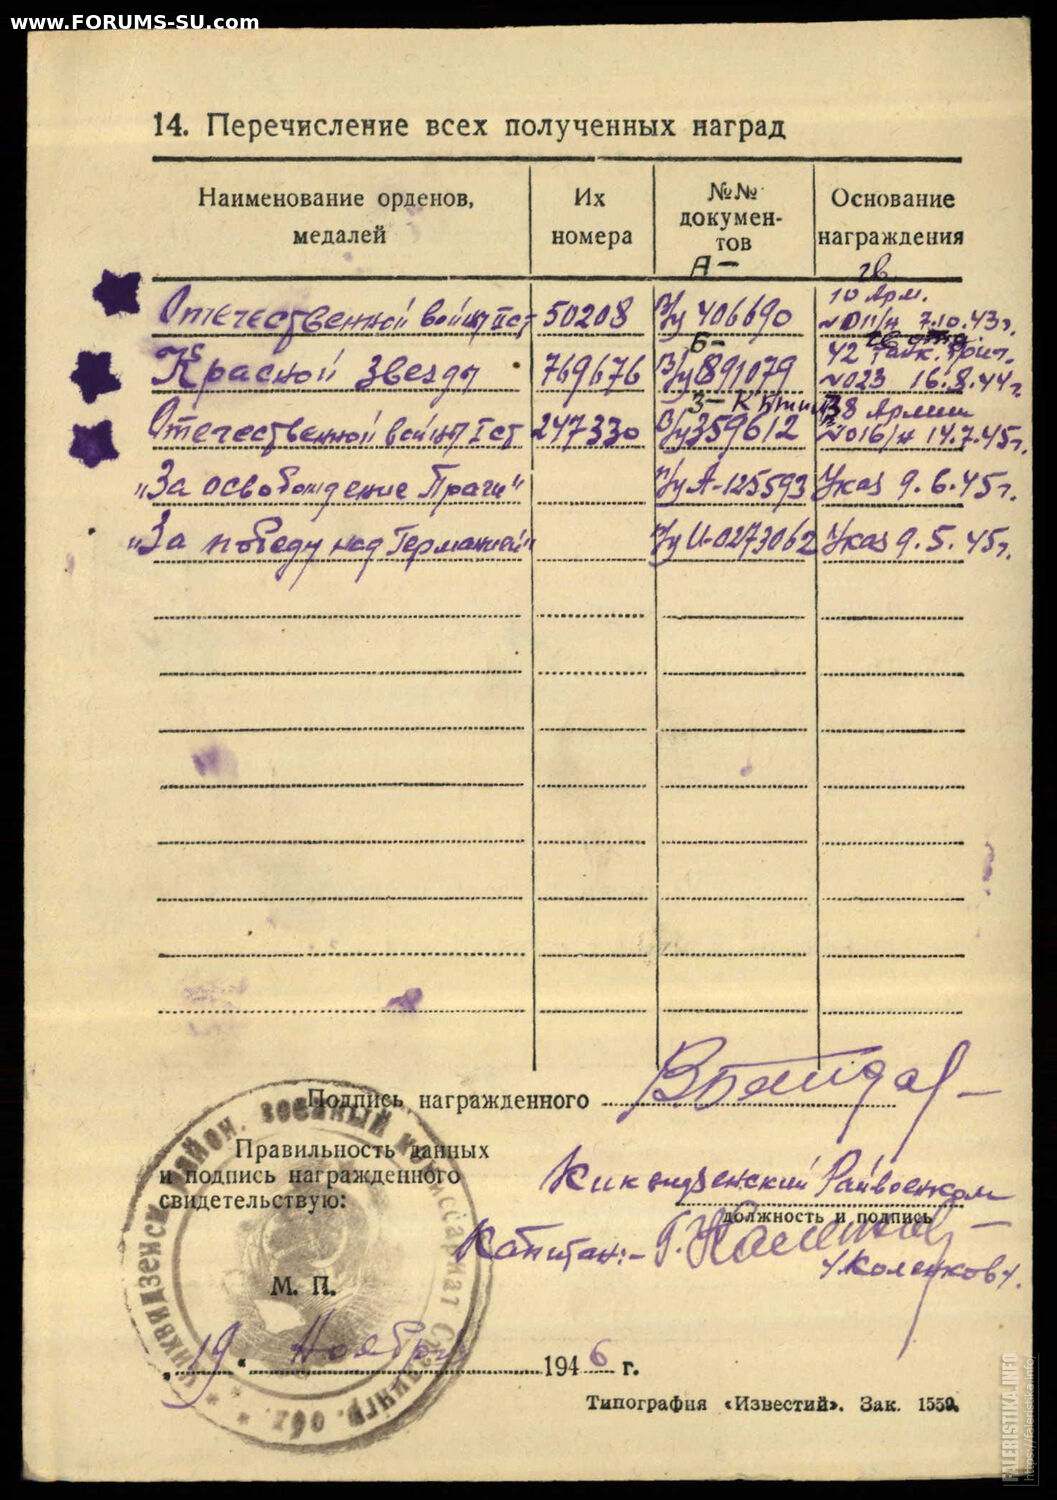 www.FORUMS-SU.com
14. Перечисление всех полученных наград
Наименование орденов, медалей
Их номера
№№ документов
Основание награждения
А-
гв.
Отечественной войны II ст 50208 В/у 406690 10 Арм. №011/н 7.10.43г.
Б-
Красной Звезды 769676 В/у 891079 42 №023 16.8.44г.
З- К
Отечественной войны I ст 247330 В/у 359612 38 Армии №016/н 14.7.45г.
"За освобождение Праги" В/у А-125593 Указ 9.6.45г.
"За победу над Германией" В/у И-0273062 Указ 9.5.45г.
Подпись награжденного
Правильность данных
и подпись награжденного
свидетельствую:
Киквидзенский Райвоенком
должность и подпись
Капитан:-
/Коленков/.
М. П.
КИКВИДЗЕНСК РАЙОН. ВОЕННЫЙ КОМИССАРИАТ СТАЛИНГР. ОБЛ.
19. Ноября 1946 г.
Типография «Известий». Зак. 1559.
FALERISTIKA.INFO
https://faleristika.info